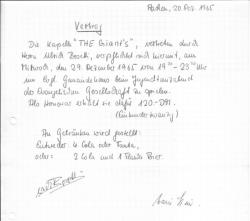 Aachen, 20. Dez. 1965
Vertrag
Die Kapelle "THE Giant's", vertreten durch
Herrn Ulrich Bosch, verpflichtet sich hiermit, am
Mittwoch, den 29. Dezember 1965 von 19⁰⁰ - 23⁰⁰ Uhr
im Evgl. Gemeindehaus beim Jugendtanzabend
der Evangelischen Gesellschaft zu spielen.
Als Honorar erhält sie dafür 120.-DM.
(Einhundertzwanzig)
An Getränken wird gestellt:
Entweder 4 Cola oder Fanta,
oder: 3 Cola und 1 Flasche Bier.